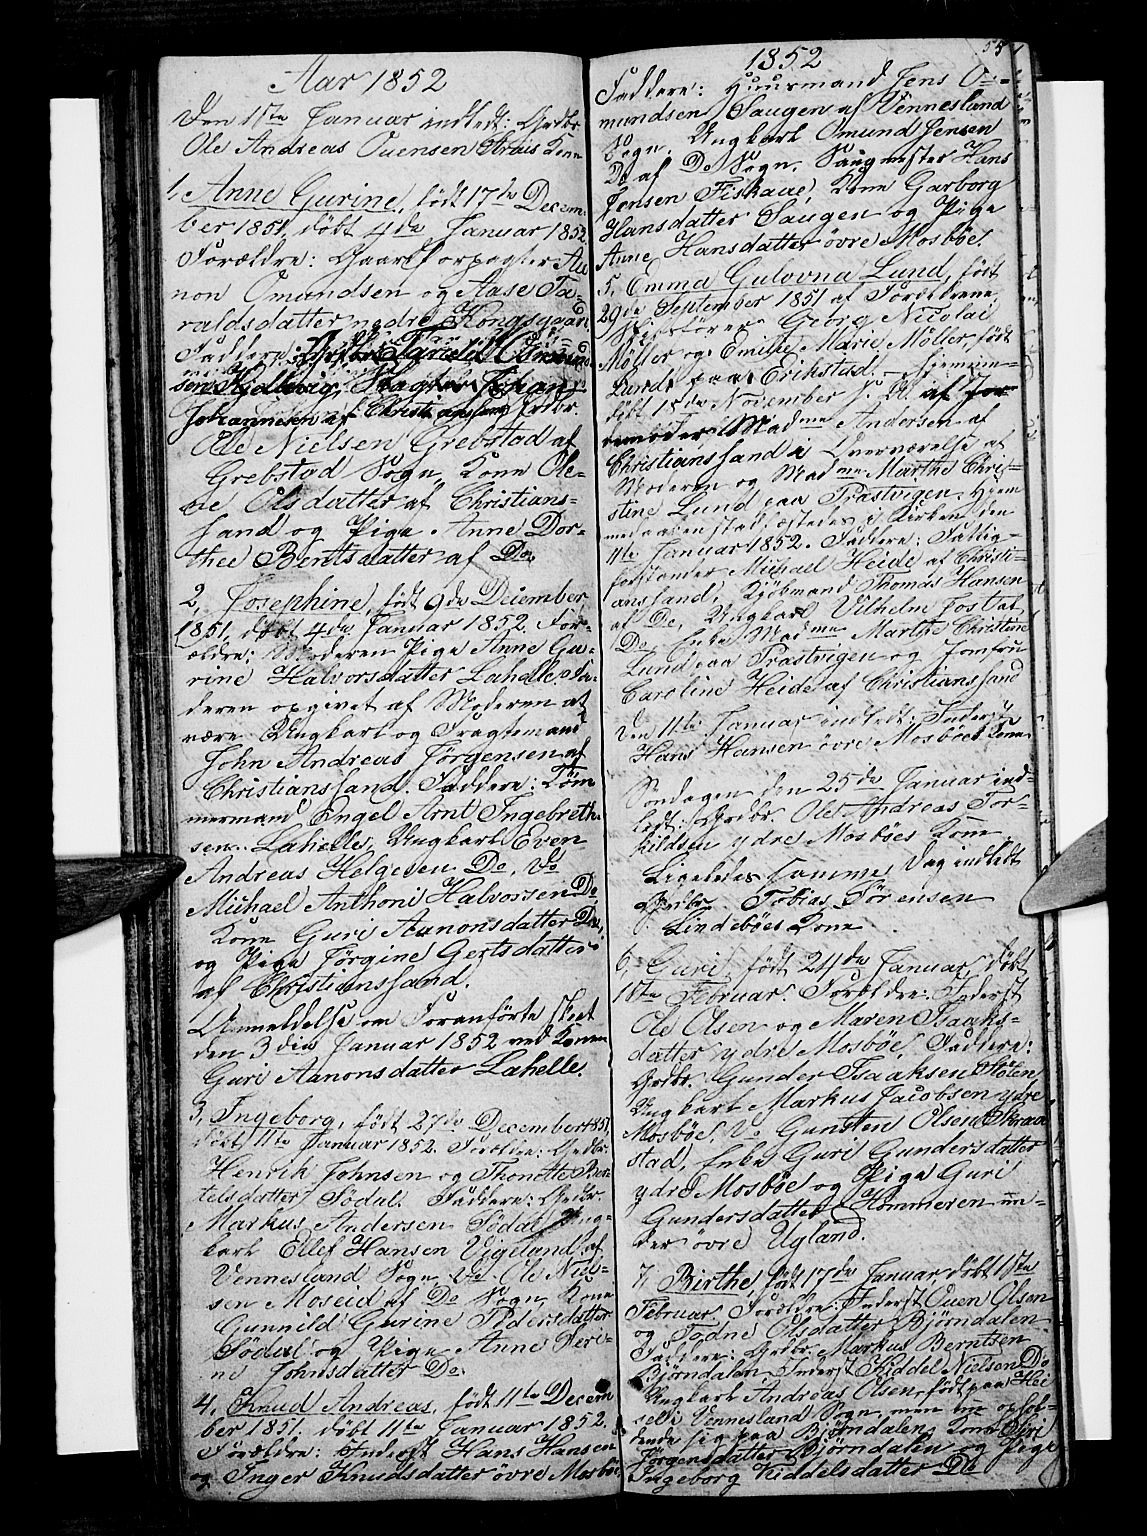 Aar 1852
Den 1ste Januar indledt: Grdbr.
Ole Andreas Ouensen Straïs Kone
1, Anne Gurine, født 17de Decem-
ber 1851, døbt 4de Januar 1852.
Forældre: Gaardforpagter Au-
non Omundsen og Aase Ta-
raldsdatter nedre Kongsgaard
Faddere: Grdbr. Tarald
Johannesen af Christianssand, Grdbr.
Ole Nielsen Grebstad af
Grebstad Sogn, Kone Ole-
ne Olsdatter af Christians-
sand og Pige Anne Dor-
thee Bentsdatter af Do.
2, Josephine, født 9de December
1851, døbt 4de Januar 1852. For-
ældre: Moderen Pige Anne Gu-
rine Halvorsdatter Lahelle, Fa-
deren opgivet af Moderen at
være Ungkarl og Fragtemand
John Andreas Jørgensen af
Christianssand. Faddere: Tøm-
mermand Engel Arnt Ingebreth-
sen Lahelle, Ungkarl Even
Andreas Helgesen Do, Do
Michael Anthoni Halvorsen Do
Kone Guri Aanonsdatter Do,
og Pige Jørgine Gertsdatter
af Christianssand.
Anmeldelse om Foranførte skeet
den 3die Januar 1852 ved Konen
Guri Aanonsdatter Lahelle.
3, Ingeborg, født 27de December 1851
døbt 11te Januar 1852. Forældre: Grdbr.
Henrik Johnsen og Thonette Ber-
telsdatter Sødal. Faddere: Grdbr.
Markus Andersen Sødal, Ung-
karl Ellef Hansen Vigeland af
Vennesland Sogn, Do Ole Niel-
sen Moseid af Do Sogn, Kone
Gunnild Gurine Pedersdatter
Sødal og Pige Anne Seri-
ne Johnsdatter Do.
4, Knud Andreas, født 11te Decem-
ber 1851, døbt 11te Januar 1852.
Forældre: Inderst Hans Hansen
og Inger Knudsdatter øvre Mosbøe
55
1852
Faddere: Huusmand Jens O-
mundsen Saugen af Vennesland
Sogn, Ungkarl Omund Jensen
Do af Do Sogn, Saugmester Hans
Jensen Fiskaae, Kone Garborg
Hansdatter Saugen og Pige
Anne Hansdatter øvre Mosbøe.
5, Emma Gulovna Lund, født
29de September 1851 af Forældrene
Georg Nicolai
Møller og Emilie Marie Møller, født
Lund, paa Erikstad. – Hjemme-
døbt 15de November s. A. af Jor-
demoder Madme Andersen af
Christianssand i Overværelse af
Moderen og Madme Marthe Chri-
stine Lund paa Præstvigen. Hjem-
medaaben stadfæstedes i Kirken den
11te Januar 1852. Faddere: Fattig-
forstander Michael Heide af Christi-
anssand, Kjøbmand Thomas Hansen
af Do, Ungkarl Vilhelm Jost af
Do Enke Madme Marthe Christine
Lund paa Præstvigen og Jomfru
Caroline Heide af Christianssand
Den 11te Januar indledt: Inderst
Hans Hansen øvre Mosbøes Kone
Søndagen den 25de Januar ind-
ledt: Grdbr. Ole Andreas Ter-
kildsen ydre Mosbøes Kone.
Ligeledes samme Dag indledt
Grdbr Tobias Sørensen
Lindebøes Kone
6, Guri, født 24de Januar, døbt
1ste Februar. Forældre: Inderst
Ole Olsen og Maren Isaaks-
datter ydre Mosbøe. Faddere:
Grdbr. Gunder Isaaksen Støten
Ungkarl Markus Jacobsen ydre
Mosbøe, Do Gunsten Olsen Skraa-
stad, Enke Guri Gundersdatter
ydre Mosbøe og Pige Guri
Gundersdatter Hommeren un-
der øvre Ugland.
7, Birthe, født 17de Januar døbt 1ste
Februar. Forældre: Inderst Ouen Olsen
og Todne Olsdatter Bjørndalen
Faddere: Grdbr. Markus Berntsen
Bjørndalen, Inderst Kiddel Nielsen Do
Ungkarl Andreas Olsen, født paa Hei-
selli Vennesland Sogn, men nu ophol-
dende sig paa Bjørndalen, Kone Siri
Jørgensdatter Bjørndalen og Pige
Ingeborg Kiddelsdatter Do